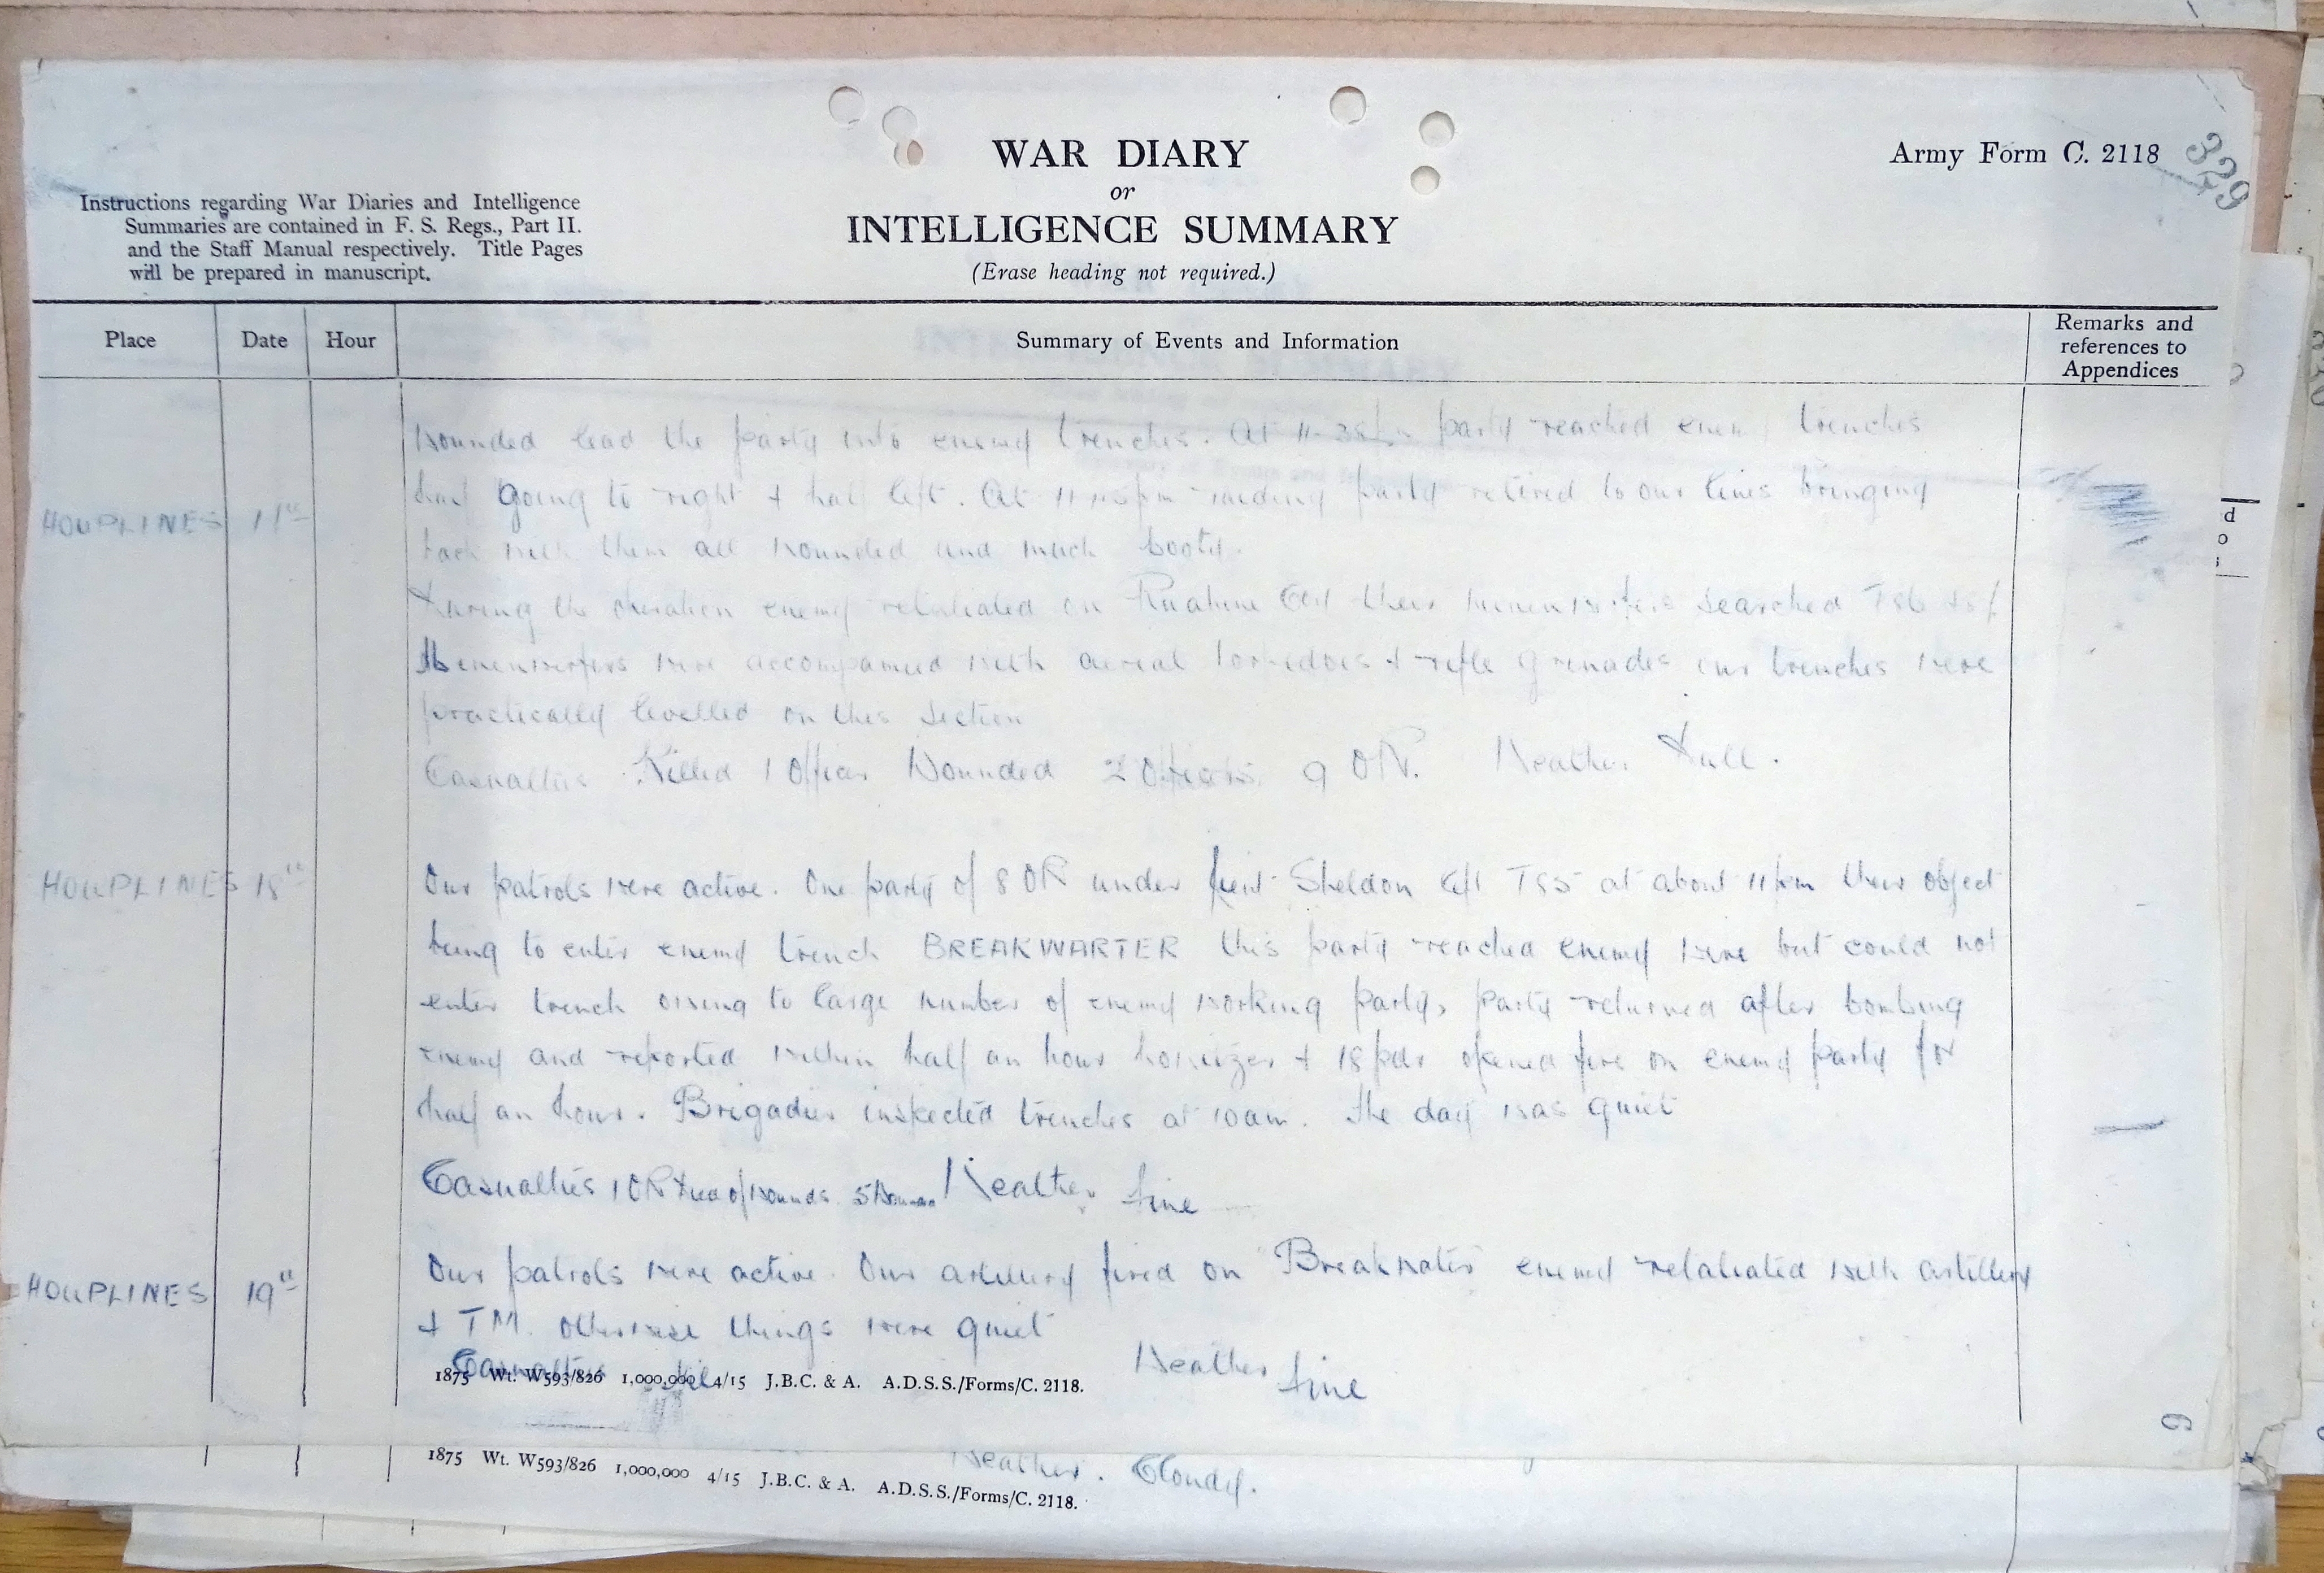 WAR DIARY
or
INTELLIGENCE SUMMARY
(Erase heading not required.)
Army Form C. 2118
Instructions regarding War Diaries and Intelligence
Summaries are contained in F. S. Regs., Part II.
and the Staff Manual respectively. Title Pages
will be prepared in manuscript.
Place Date Hour Summary of Events and Information Remarks and references to Appendices
wounded lead the party into enemy trenches. At party reached enemy trenches
half going to right & half left. At raiding party retired to our lines bringing
HOUPLINES
back with them all wounded and much booty.
During the operation enemy retaliated on their minenwerfers searched
Minenwerfers were accompanied with aerial torpedoes & rifle grenades our trenches were
practically levelled on this section
Casualties Killed 1 Officer Wounded 2 Officers 9 OR. Weather Dull.
HOUPLINES 18th Our patrols were active. One party of 8 OR under Lieut Sheldon left at about 11pm their object
being to enter enemy trench BREAKWARTER this party reached enemy wire but could not
enter trench owing to large number of enemy working party, party returned after bombing
enemy and reported within half an hour howitzer & 18 pdr opened fire on enemy party for
half an hour. Brigadier inspected trenches at 10am. The day was quiet
Casualties 1 OR Died of Wounds. 5 Weather fine
HOUPLINES 19th Our patrols were active. Our artillery fired on Breakwater enemy retaliated with artillery
& TM. otherwise things were quiet
Casualties Nil Weather fine
1875 Wt. W593/826 1,000,000 4/15 J.B.C. & A. A.D.S.S./Forms/C. 2118.
Weather. Cloudy.
1875 Wt. W593/826 1,000,000 4/15 J.B.C. & A. A.D.S.S./Forms/C. 2118.